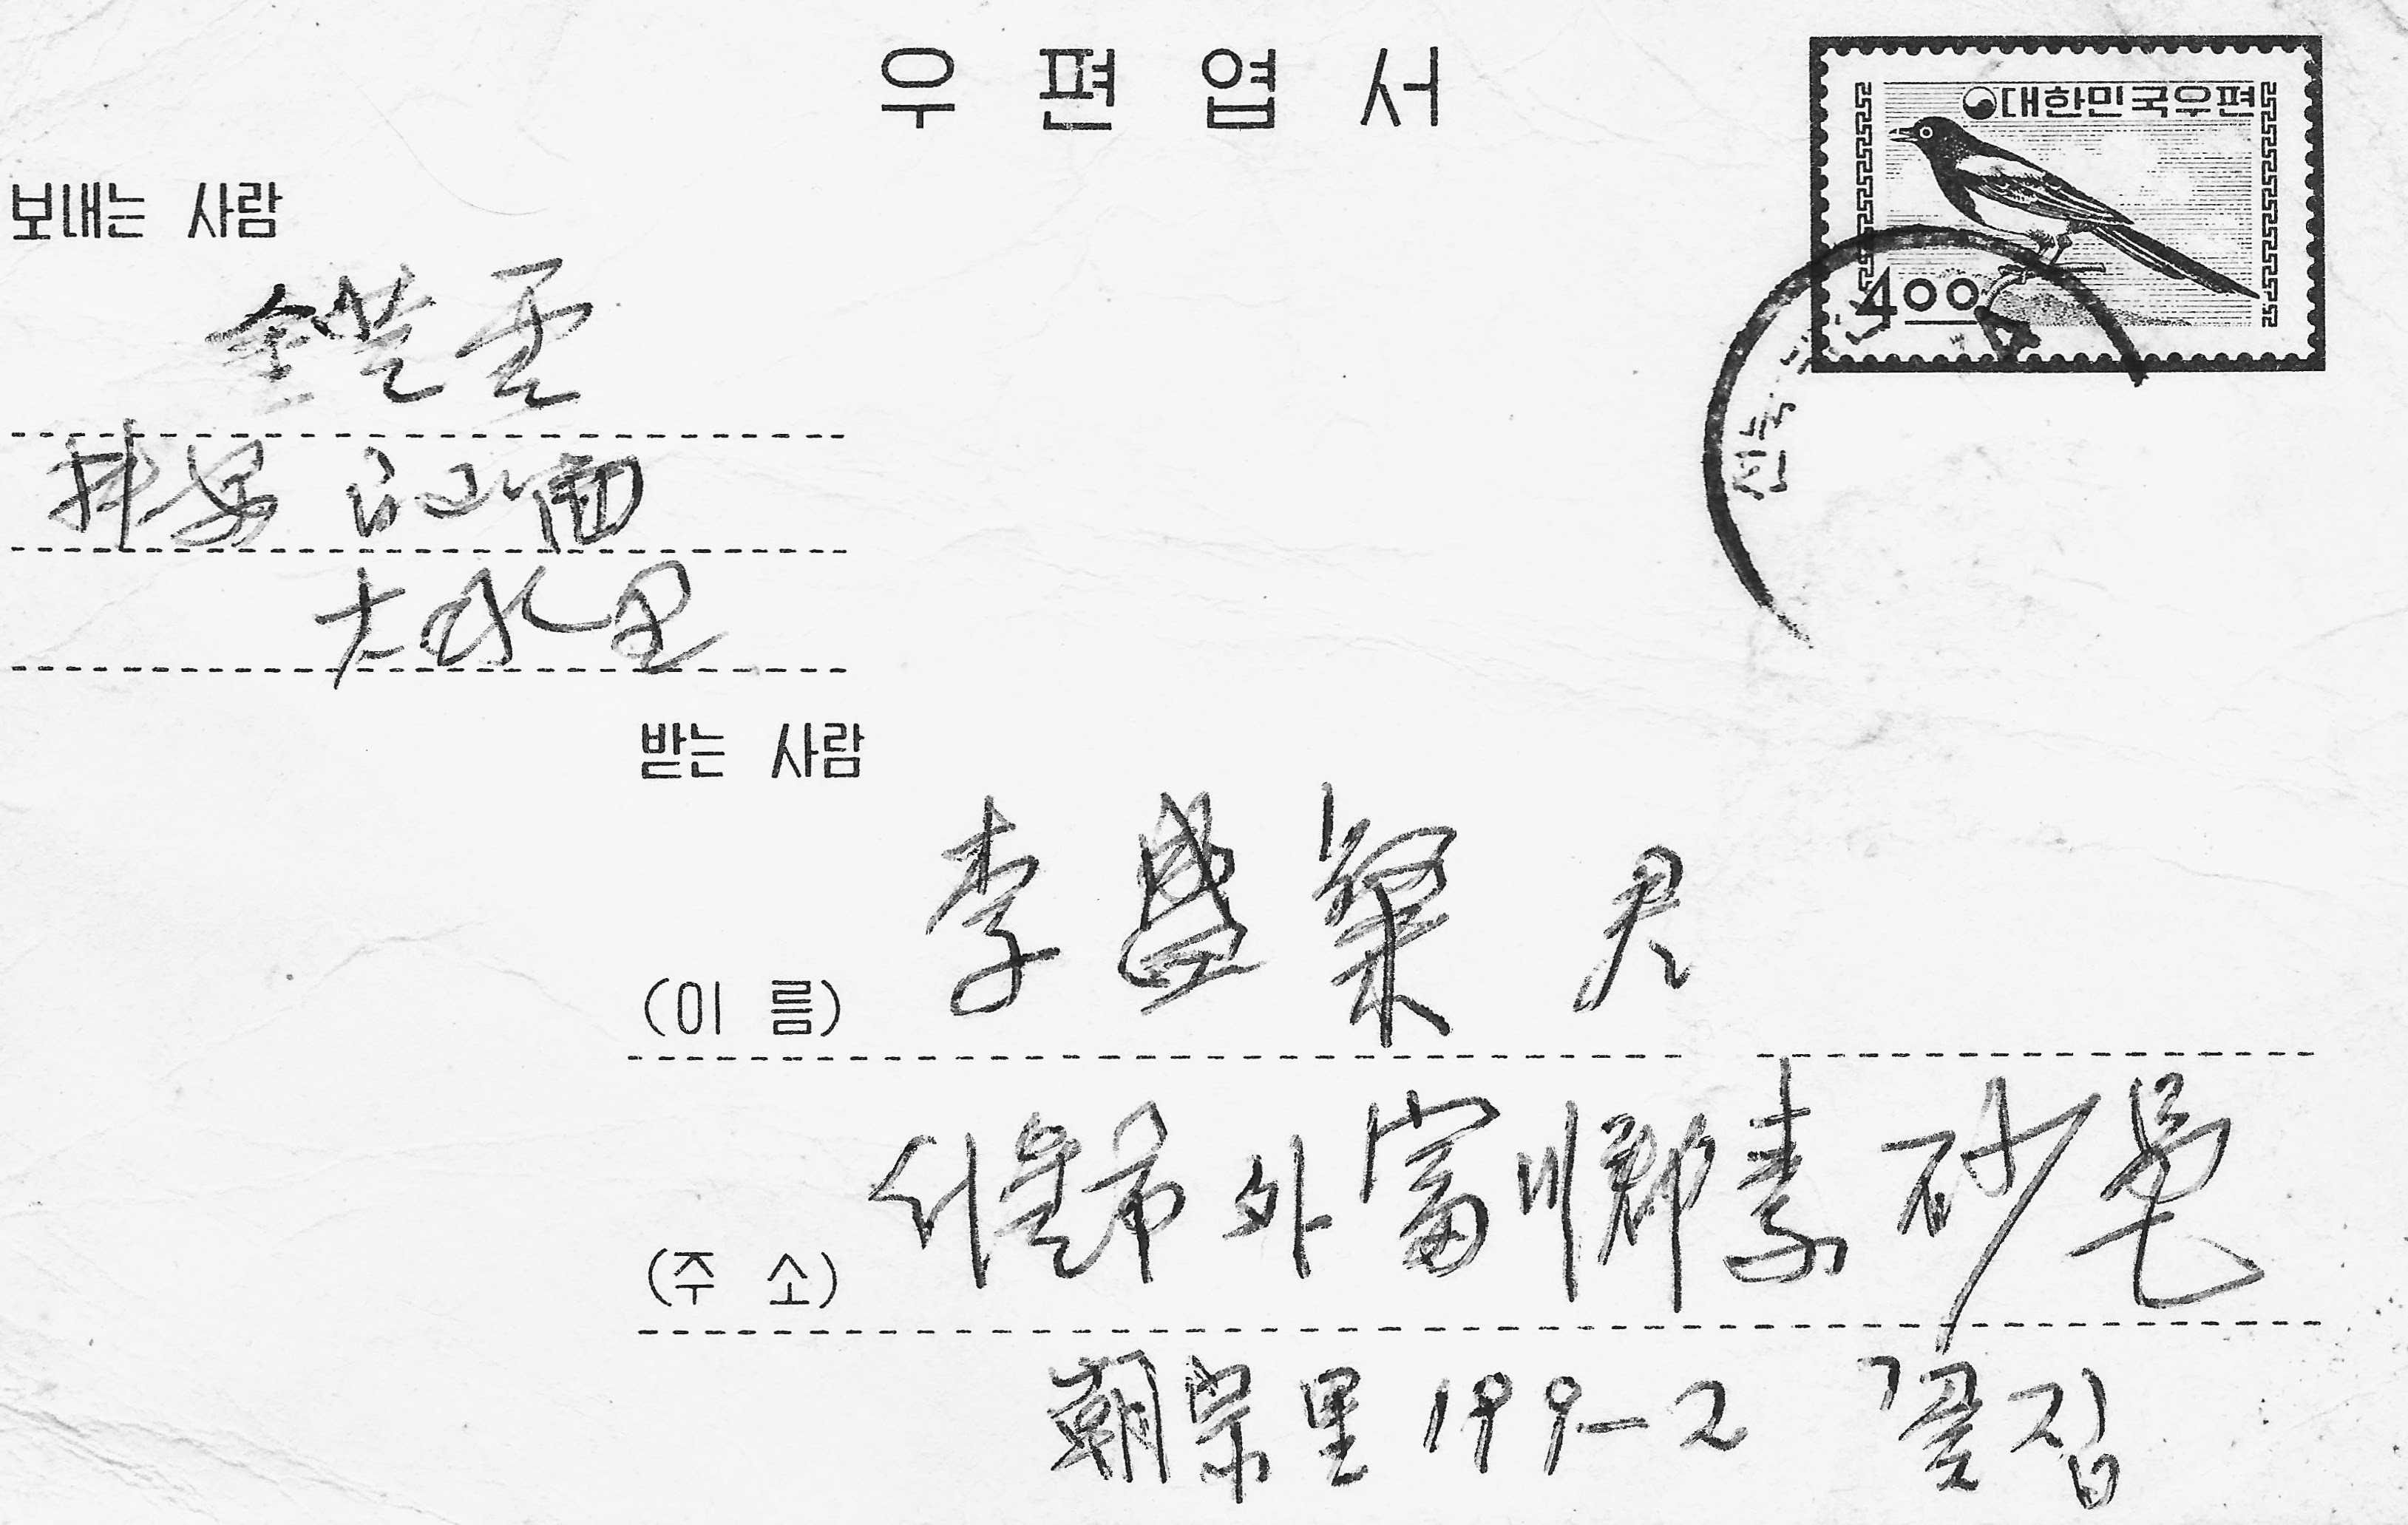 우편엽서
대한민국우편
400
보내는 사람
扶安 白山面
大水里
받는 사람
(이름) 李盛粲 君
(주소) 서울市外 富川郡 素砂邑
朝宗里 199-2 꽃집